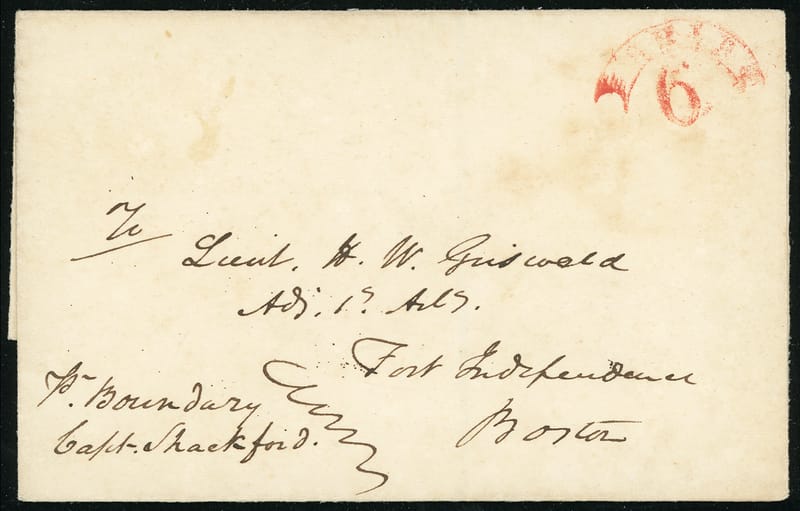 SHIP
6
To
Lieut. H. W. Griswold
Adj. 1st Arty.
Fort Independence
Boston
Pr. Boundary
Capt. Shackford.